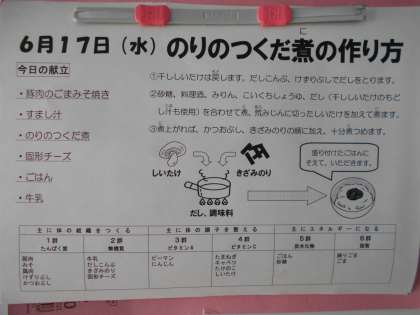 6月17日（水）のりのつくだ煮の作り方
に
今日の献立
・豚肉のごまみそ焼き
・すまし汁
・のりのつくだ煮
・固形チーズ
・ごはん
・牛乳
①干ししいたけは戻します。だしこんぶ、けずりぶしでだしをとります。
②砂糖、料理酒、みりん、こいくちしょうゆ、だし（干ししいたけのもど
し汁も使用）を合わせて煮、荒みじんに切ったしいたけを加えて煮ます。
③煮上がれば、かつおぶし、きざみのりの順に加え、十分煮つめます。
しいたけ
きざみのり
だし、調味料
盛り付けたごはんに
そえて、いただきます。
主に体の組織をつくる
主に体の調子を整える
主にエネルギーになる
1群
2群
3群
4群
5群
6群
たんぱく質
無機質
ビタミンA
ビタミンC
炭水化物
脂質
豚肉
みそ
鶏肉
けずりぶし
かつおぶし
牛乳
だしこんぶ
きざみのり
固形チーズ
ピーマン
にんじん
たまねぎ
キャベツ
たけのこ
しいたけ
ごはん
砂糖
練りごま
ごま